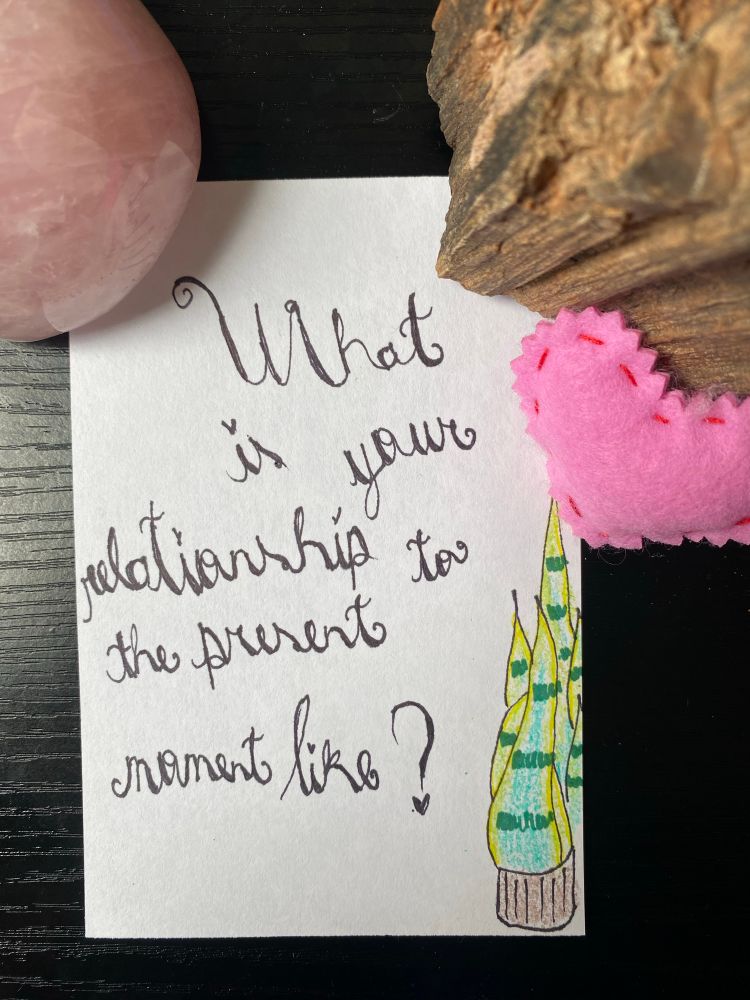 What
is your
relationship to
the present
moment like?